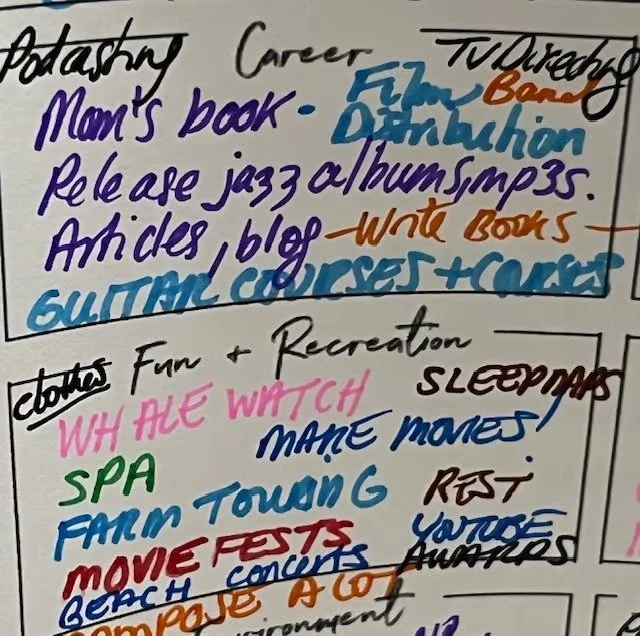 Podcasting Career TV Directing
Mom's book - Film Band
Distribution
Release jazz albums, mp3s.
Articles, blog - Write Books -
GUITAR COURSES + COURSES
clothes Fun + Recreation
WHALE WATCH SLEEP NAPS
MAKE MOVIES
SPA
FARM TOURING REST
MOVIE FESTS YOUTUBE
BEACH CONCERTS AWARDS
COMPOSE A LOT